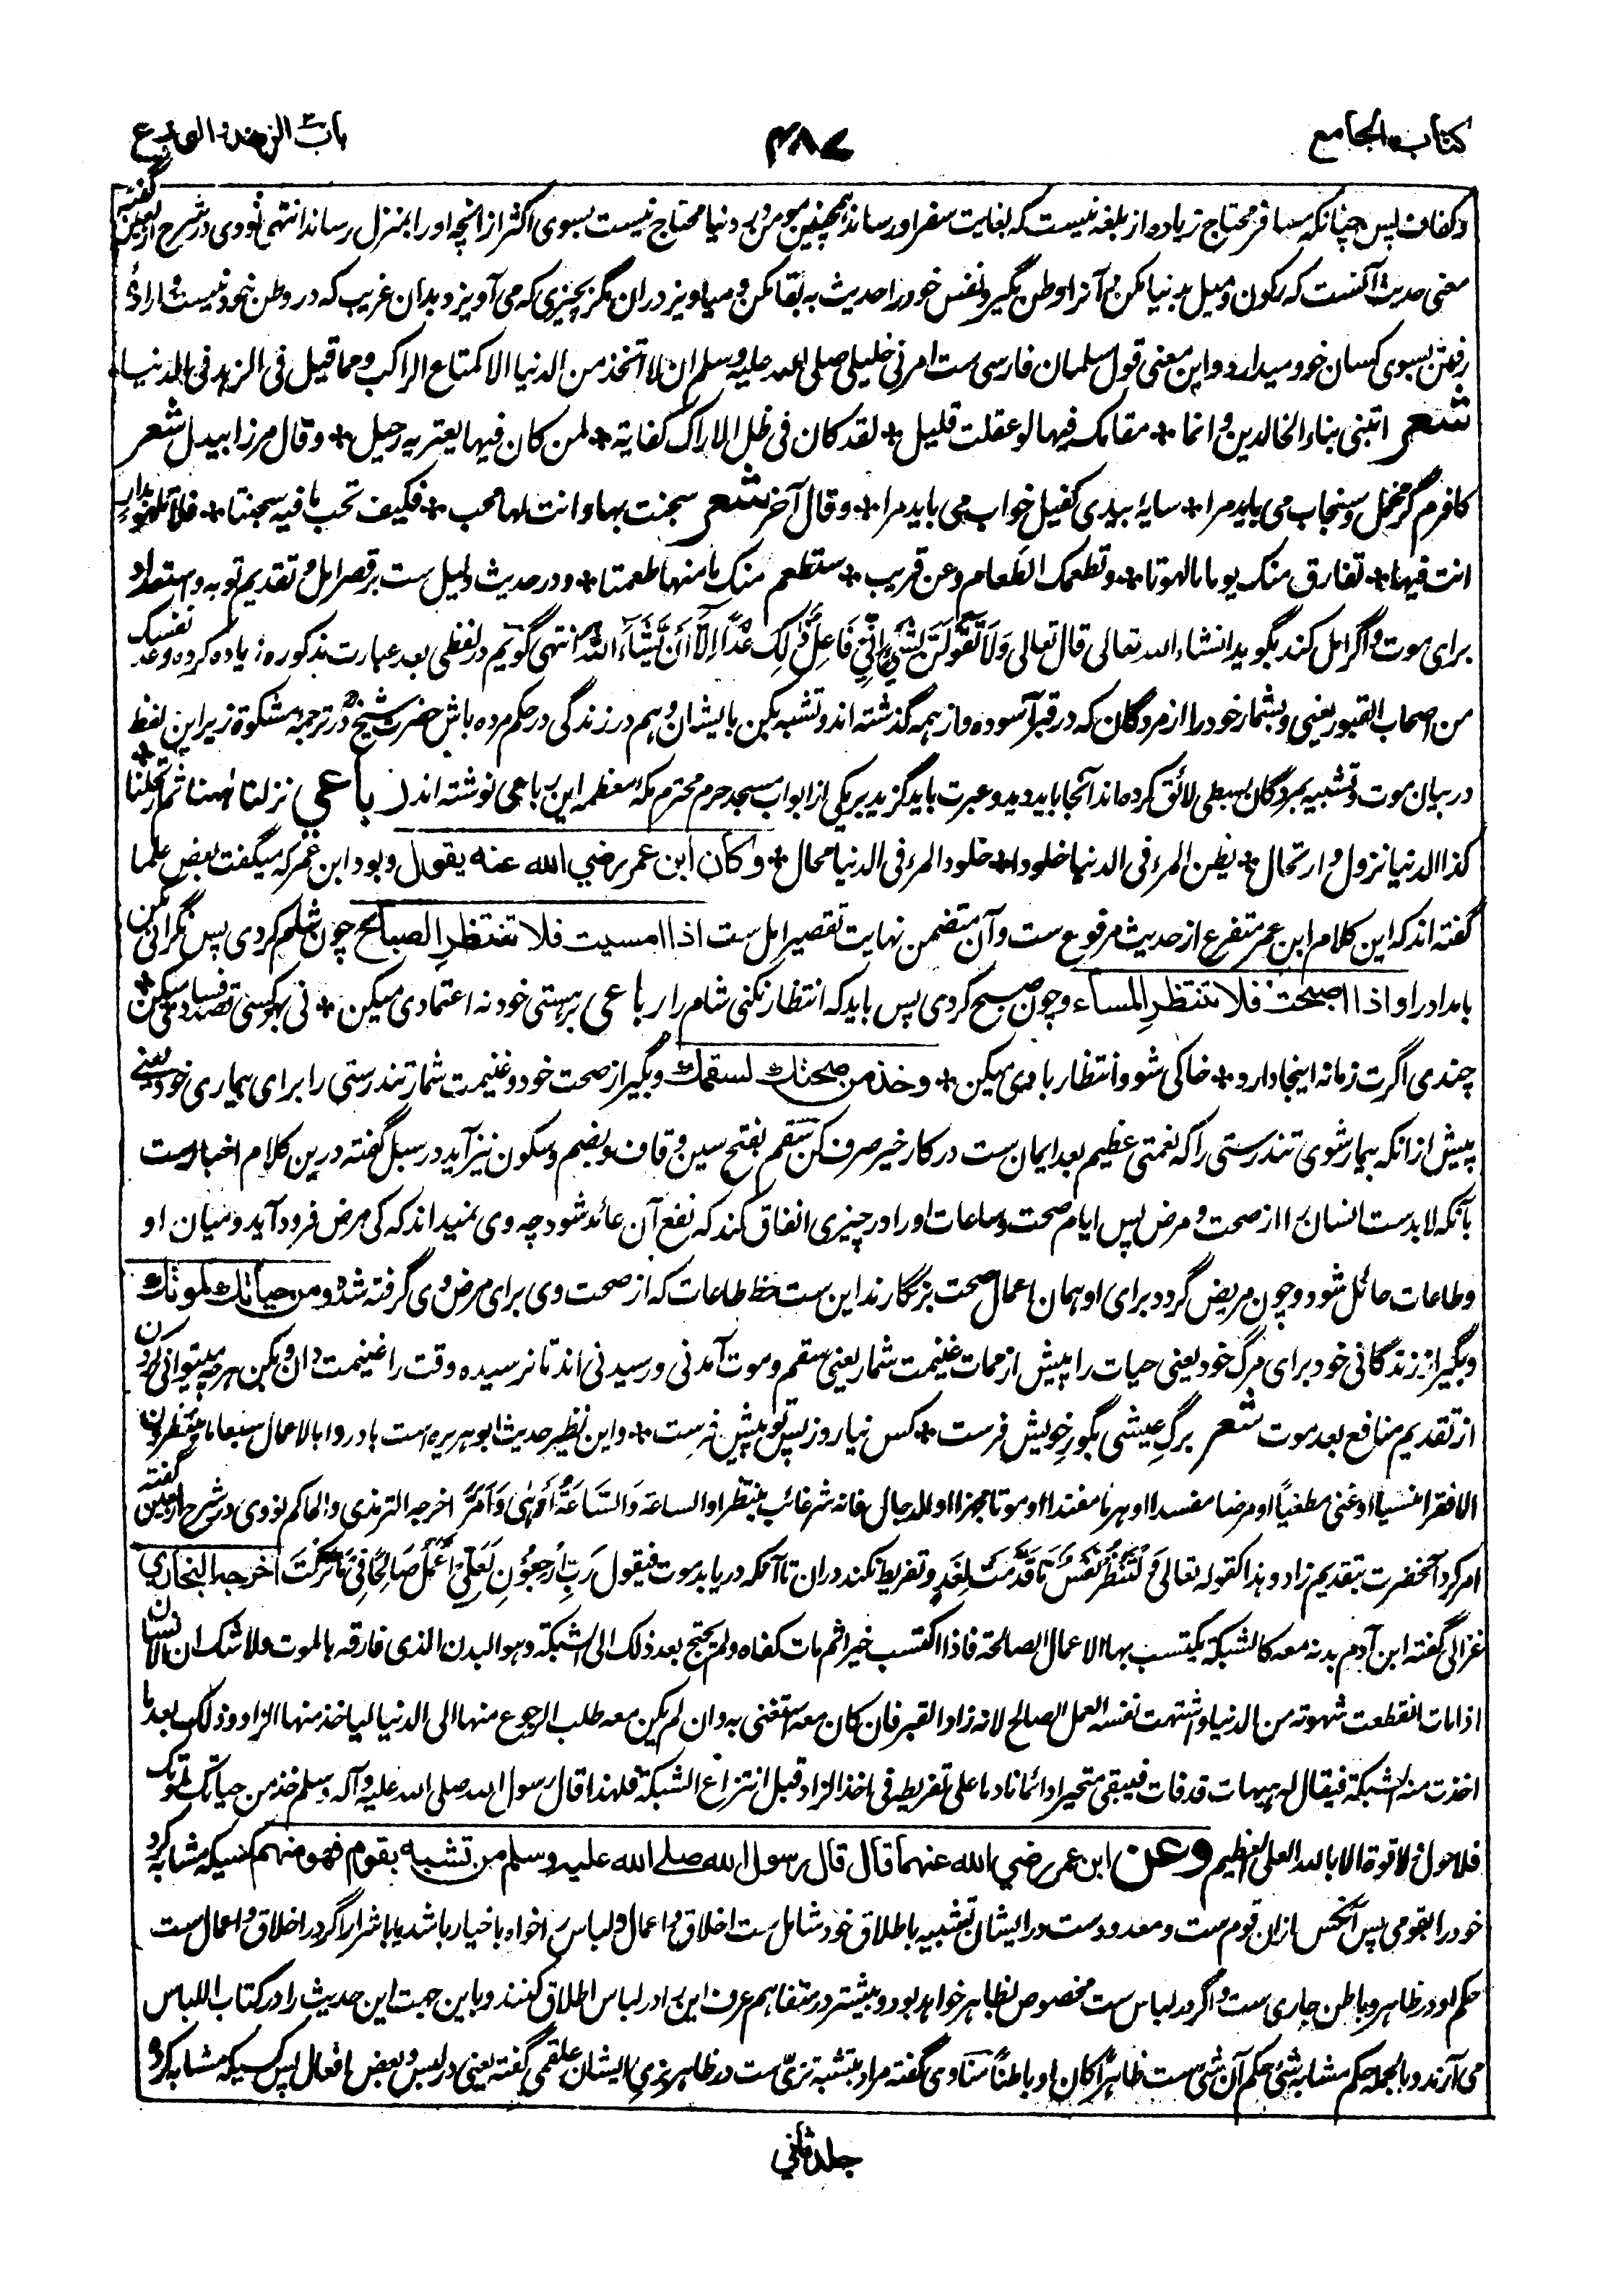 کتاب الجامع
۴۸۷
باب الزهد والورع
و کفاف پس چنانکه مسافر محتاج زیاده از بلغه نیست که بغایت سفر اور ساند همچنین مومن در دنیا محتاج نیست بسوی اکثر از انچه او را بمنزل رساند انتهی نووی در شرح اربعین گفته
معنی حدیث آنست که رکون و میل بدنیا مکن و آنرا وطن مگیر و نفس خود را حدیث به بقا مکن و میاویز دران مگر بچیزی که می آویزد بدان غریب که در وطن خود نیست و اراده
رفتن بسوی کسان خود میدارد و این معنی قول سلمان فارسی ست امرنی خلیلی صلی الله علیه وسلم ان لا اتخذ من الدنیا الا کمتاع الراکب و مما قیل فی الزهد فی الدنیا
شعر اتبنی بناء الخالدین و انما * مقامک فیها لو عقلت قلیل * لقد کان فی ظل الاراک کفایة * لمن کان فیها یعتریه رحیل * و قال مرزا بیدل شعر
کافرم گر مخمل و سنجاب می باید مرا * سایۀ بیدی کفیل خواب می باید مرا * و قال آخر شعر سجنت بها و انت لها محب * فکیف تحب ما فیه سجنتا * فلا تلهو بدار
انت فیها * تفارق منک یوما ما لهوتا * و تطعمک الطعام و عن قریب * ستطعم منک ما منها طعمتا * و در حدیث دلیل ست بر قصر امل و تقدیم توبه و استعداد
برای موت و اگر امل کند بگوید انشاء الله تعالی قال تعالی وَلَا تَقُولَنَّ لِشَيْءٍ إِنِّي فَاعِلٌ ذَٰلِكَ غَدًا إِلَّا أَن يَشَاءَ اللَّهُ انتهی گویم در لفظی بعد عبارت مذکوره زیاده کرده وعد نفسک
من اصحاب القبور یعنی و بشمار خود را از مردگان که در قبر آسوده و از همه گذشته اند و تشبه بکن بایشان و هم در زندگی در حکم مرده باش حضرت شیخ در ترجمه مشکوة زیر این لفظ
در بیان موت و تشبیه بمردگان بسطی لائق کرده اند آنجا باید دید و عبرت باید گزید بر یکی از ابواب مسجد حرم محترم مکه معظمه این رباعی نوشته اند رباعی نزلنا ههنا ثم ارتحلنا *
کذا الدنیا نزول و ارتحال * یظن المرء فی الدنیا خلودا * خلود المرء فی الدنیا محال * وکان ابن عمر رضي الله عنه يقول و بود ابن عمر که میگفت بعض علما
گفته اند که این کلام ابن عمر متفرع از حدیث مرفوع ست و آن متضمن نهایت تقصیر امل ست اذا امسيت فلا تنتظر الصباح چون شام کردی پس نگرانی مکن
بامداد را و اذا اصبحت فلا تنتظر المساء و چون صبح کردی پس باید که انتظار نکنی شام را رباعی بر هستی خود نه اعتمادی میکن * نی بر کسی قصد فسادی میکن *
چندی اگرت زمانه اینجا دارد * خاکی شو و انتظار بادی میکن * وخذ من صحتك لسقمك و بگیر از صحت خود و غنیمت شمار تندرستی را برای بیماری خود یعنی
پیش از انکه بیمار شوی تندرستی را که نعمتی عظیم بعد ایمان ست در کار خیر صرف کن سقم بفتح سین و قاف و بضم و سکون نیز آید در سبل گفته درین کلام اخبار ست
بآنکه لابد ست انسان را از صحت و مرض پس ایام صحت و ساعات او را در چیزی انفاق کند که نفع آن عائد شود چه وی نمیداند که کی مرض فرود آید و میان او
و طاعات حائل شود و چون مریض گردد برای او همان اعمال صحت بر نگارند این ست حظ طاعات که از صحت وی برای مرض وی گرفته شد ومن حياتك لموتك
و بگیر از زندگانی خود برای مرگ خود یعنی حیات را پیش از ممات غنیمت شمار یعنی سقم و موت آمدنی و رسیدنی اند تا نرسیده وقت را غنیمت دان و بکن هر چه میتوانی کردن
از تقدیم منافع بعد موت شعر برگ عیشی بگور خویش فرست * کس نیارد ز پس تو پیش فرست * و این نظیر حدیث ابو هریره است بادروا بالاعمال سبعا ما تنتظرون
الا فقرا منسیا او غنی مطغیا او مرضا مفسدا او هرما مفندا او موتا مجهزا او الدجال فانه شر غائب ینتظر او الساعة وَالسَّاعَةُ أَدْهَىٰ وَأَمَرُّ اخرجه الترمذی والحاکم نووی در شرح اربعین گفته
امر کرد آنحضرت بتقدیم زاد و هذا کقوله تعالی وَلْتَنظُرْ نَفْسٌ مَّا قَدَّمَتْ لِغَدٍ و تفریط نکند دران تا آنکه دریابد موت فیقول رَبِّ ارْجِعُونِ لَعَلِّي أَعْمَلُ صَالِحًا فِيمَا تَرَكْتُ اخرجه البخاري
غزالی گفته ابن آدم بدنه معه کالشبکة یکتسب بها الاعمال الصالحة فاذا اکتسب خیرا ثم مات کفاه و لم یحتج بعد ذلک الی الشبکة و هو البدن الذی فارقه بالموت ولا شک ان الانسان
اذا مات انقطعت شهوته من الدنیا و اشتهت نفسه العمل الصالح لانه زاد القبر فان کان معه استغنی به و ان لم یکن معه طلب الرجوع منها الی الدنیا لیاخذ منها الزاد و ذلک بعد ما
اخذت منه الشبکة فیقال له هیهات قد فات فیبقی متحیرا دائما نادما علی تفریطه فی اخذ الزاد قبل انتزاع الشبکة فلهذا قال رسول الله صلی الله علیه و آله وسلم خذ من حیاتک لموتک
فلا حول ولا قوة الا بالله العلی العظیم وعن ابن عمر رضي الله عنهما قال قال رسول الله صلے الله عليه وسلم من تشبه بقوم فهو منهم کسیکه مشابه کرد
خود را بقومی پس آنکس ازان قوم ست و معدود ست در ایشان تشبیه باطلاق خود شامل ست اخلاق و اعمال و لباس را خواه باخیار باشد یا باشرار اگر در اخلاق و اعمال ست
حکم او در ظاهر و باطن جاری ست و اگر در لباس ست مخصوص بظاهر خواهد بود و بیشتر در متفاهم عرف این را در لباس اطلاق کنند و باین جهت این حدیث را در کتاب اللباس
می آرند و بالجمله حکم مشابه شئ حکم آن شئ ست ظاهرا کان او باطنا مناوی گفته مراد بتشبه تزیی ست در ظاهر بزی ایشان علقمی گفته یعنی در لبس و بعض افعال پس کسیکه مشابه کرد
جلد ثانی